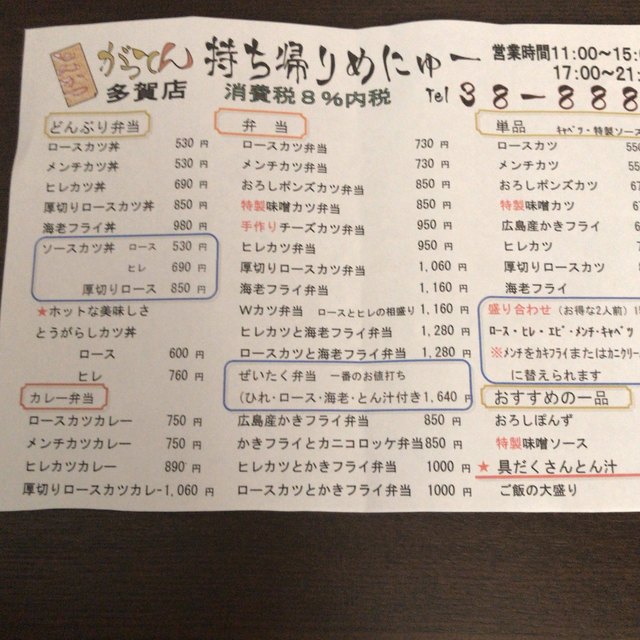 がってん 持ち帰りめにゅー 営業時間11:00〜15:
多賀店 消費税8%内税 Tel 38-888
17:00〜21:
どんぶり弁当
ロースカツ丼 530円
メンチカツ丼 530円
ヒレカツ丼 690円
厚切りロースカツ丼 850円
海老フライ丼 980円
ソースカツ丼 ロース 530円
ヒレ 690円
厚切りロース 850円
★ホットな美味しさ
とうがらしカツ丼
ロース 600円
ヒレ 760円
カレー弁当
ロースカツカレー 750円
メンチカツカレー 750円
ヒレカツカレー 890円
厚切りロースカツカレー1,060円
弁当
ロースカツ弁当 730円
メンチカツ弁当 730円
おろしポンズカツ弁当 850円
特製味噌カツ弁当 850円
手作りチーズカツ弁当 950円
ヒレカツ弁当 950円
厚切りロースカツ弁当 1,060円
海老フライ弁当 1,160円
Wカツ弁当 ロースとヒレの相盛り 1,160円
ヒレカツと海老フライ弁当 1,280円
ロースカツと海老フライ弁当 1,280円
ぜいたく弁当 一番のお値打ち
(ひれ・ロース・海老・とん汁付き1,640円
広島産かきフライ弁当 850円
かきフライとカニコロッケ弁当850円
ヒレカツとかきフライ弁当 1000円
ロースカツとかきフライ弁当 1000円
単品 キャベツ・特製ソース
ロースカツ 55
メンチカツ 55
おろしポンズカツ 67
特製味噌カツ 67
広島産かきフライ 6
ヒレカツ
厚切りロースカツ
海老フライ
盛り合わせ (お得な2人前)
ロース・ヒレ・エビ・メンチ・キャベツ
※メンチをカキフライまたはカニクリー
に替えられます
おすすめの一品
おろしぽんず
特製味噌ソース
★ 具だくさんとん汁
ご飯の大盛り